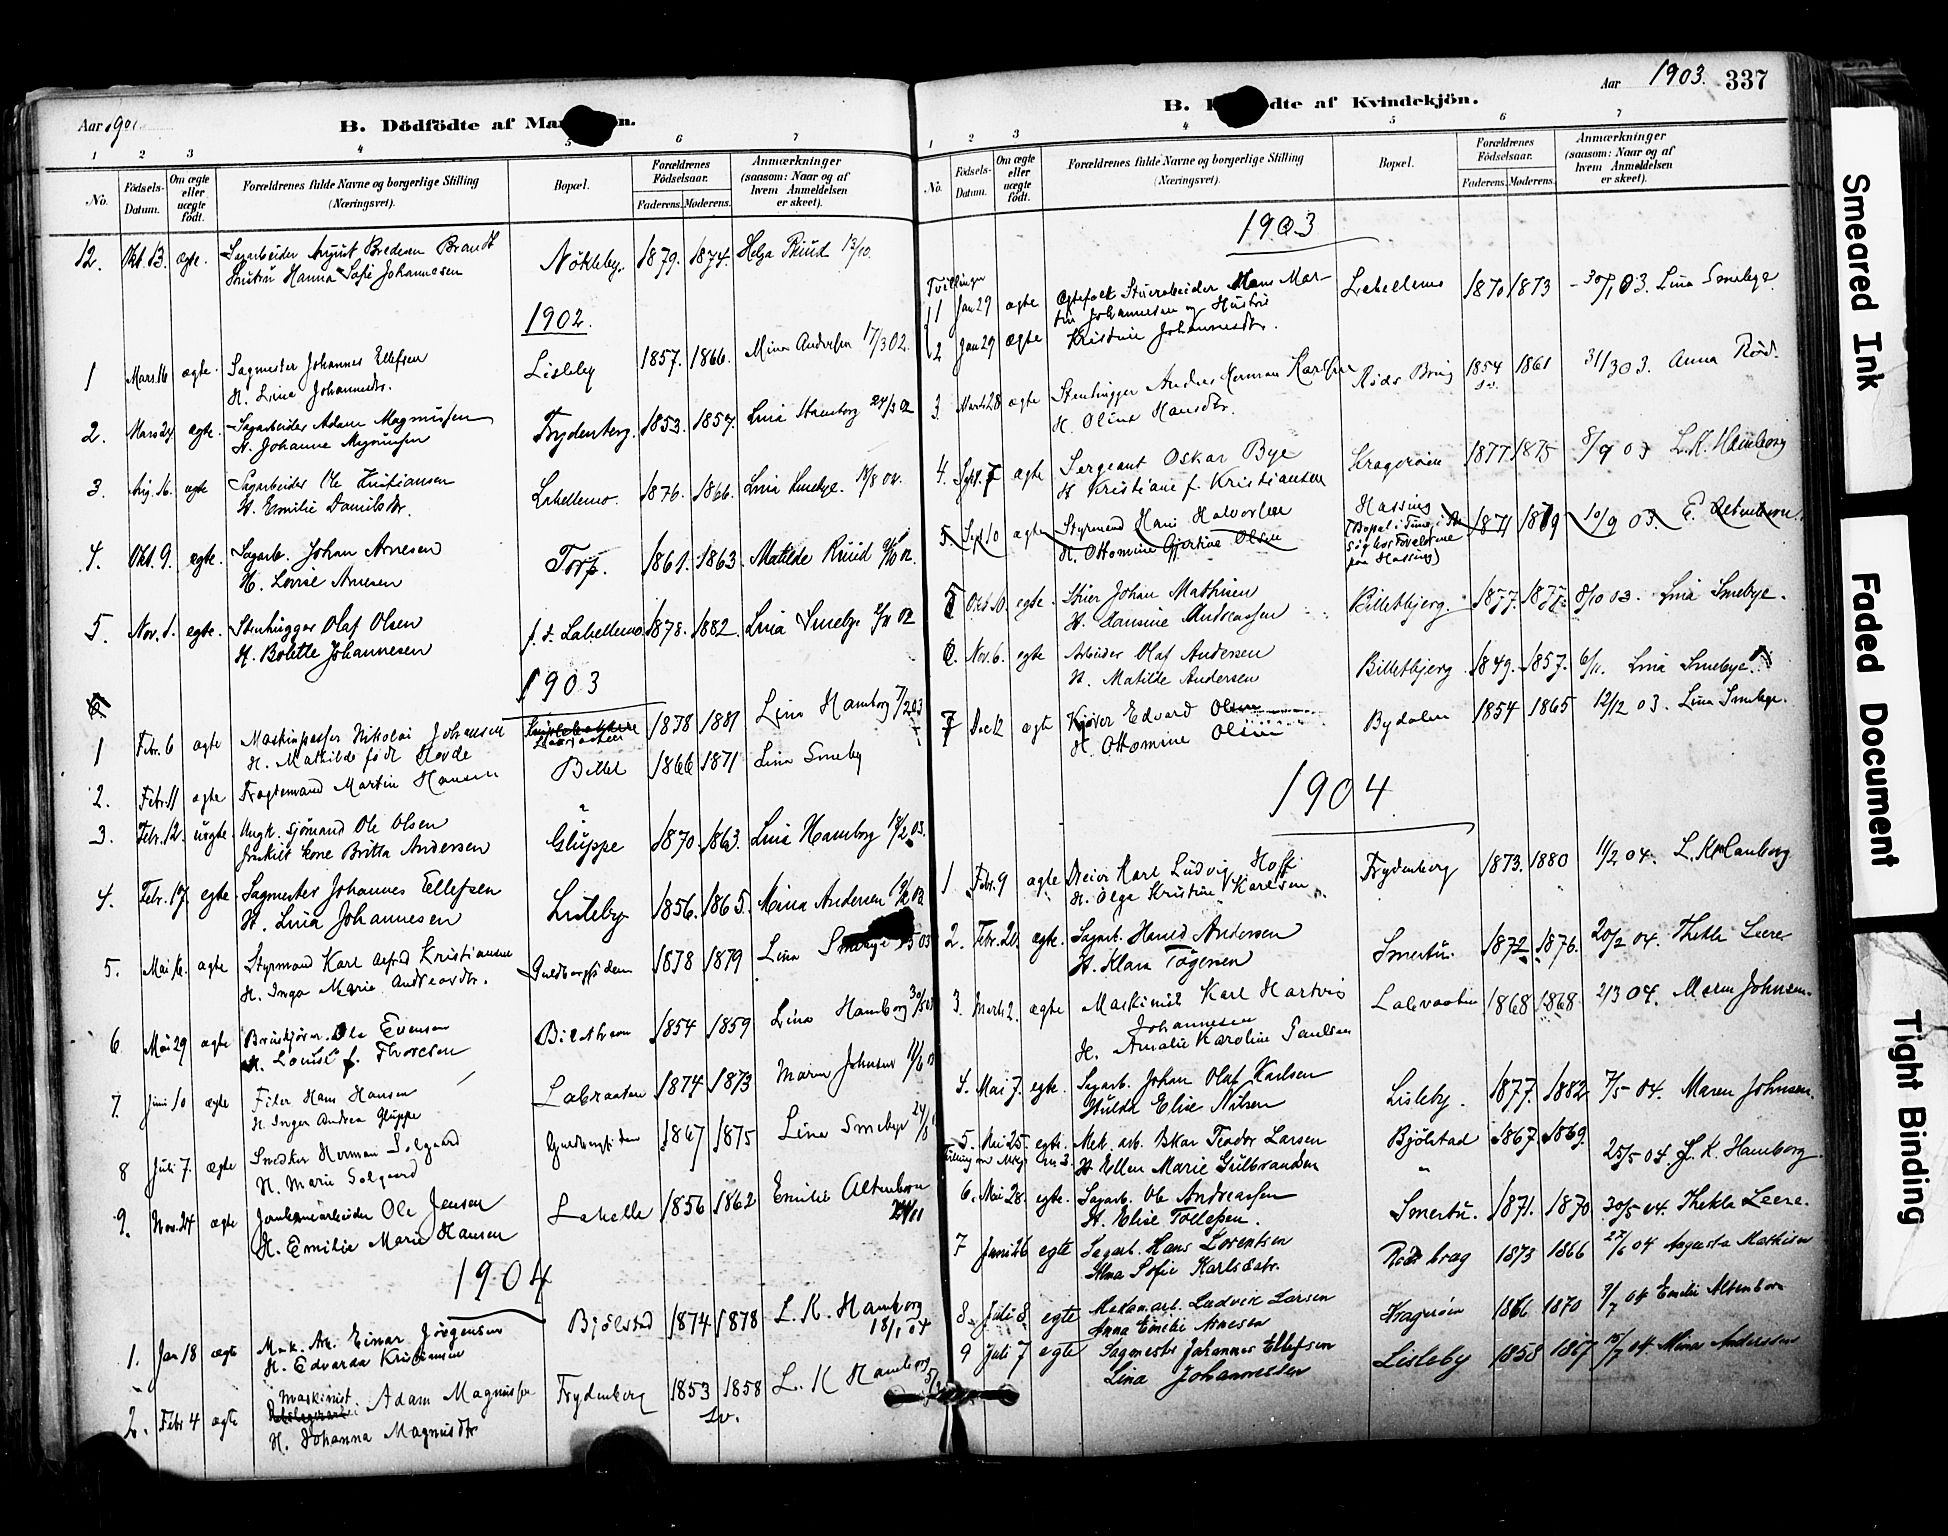 Aar 1901.
B. Dödfödte af Man
n.
1 2 3 4 5 6 7
No.
Födsels-Datum.
Om ægte eller uægte födt.
Forældrenes fulde Navne og borgerlige Stilling (Næringsvei).
Bopæl.
Forældrenes Födselsaar.
Faderens. Moderens.
Anmærkninger (saasom: Naar og af hvem Anmeldelsen er skeet).
12. Okt. 13. ægte. Sagarbeider August Bredesen Brandt Nökleby. 1879. 1874. Helga Ruud 13/10.
Hustru Hanna Sofie Johannesen
1902.
1 Mars 16 ægte. Sagmester Johannes Ellefsen Lisleby 1857. 1866. Mina Andersen 17/3 02.
H. Lina Johannesdtr.
2. Mars 24 ægte. Sagarbeider Adam Magnussen Frydenberg. 1853. 1857. Lina Hamborg 24/3 02
H. Johanne Magnussen
3. Aug. 16. ægte Sagarbeider Ole Kristiansen Lahellemo. 1876. 1866. Lina Smebye. 18/8 02.
H. Emilie Danielsdtr.
4. Okt. 9. ægte. Sagarb. Johan Arnesen Torp. 1861. 1863. Matilde Ruud 9/10 02.
H. Lovise Arnesen
5. Nov. 1. egte. Stenhugger Olaf Olsen f. t. Lahellemo 1878. 1882. Lina Smebye 02
H. Bolette Johannesen
1903
1 Febr. 6 ægte Maskinpasser Nikolai Johansen 1878 1881 Lina Hamborg 7/2 03
H. Mathilde födt Hovde
2. Febr. 11 ægte Fragtemand Martin Hansen Bittel 1866 1871 Lina Smeby
3. Febr. 12. uægte. Ungk. sjömand Ole Olsen Gluppe 1870. 1863. Lina Hamborg 18/2 03.
fraskilt kone Britta Andersen
4. Febr. 17. egte. Sagmester Johannes Ellefsen Lisleby 1856. 1865. Mina Andersen 03
H. Lina Johannesen
5. Mai 16. ægte Styrmand Karl Alfred Kristiansen Guldbergsiden 1878 1879 Lina Smebye 03
H. Inga Marie Andreasdtr.
6 Mai 29 ægte Ole Evensen 1854 1859 Lina Hamborg 30/5 03
H. Louise f. Thoresen
7. Juni 10 ægte Filer Hans Hansen Labraaten 1874 1873 Maren Johnsen
H. Inger Andrea Gluppe
8 Juli 7. ægte Snedker Herman Solgaard Guldbergsiden 1867 1875 Lina Smebye
H. Marie Solgaard
9. Nov. 24 ægte Jernbanearbeider Ole Jensen Lahelle 1856 1862 Emilie Altenborn
H. Emilie Marie Hansen 24/11
1904
1. Jan 18 ægte Mek. Arb. Einar Jörgensen Bjölstad 1874 1878 L. K. Hamborg
H. Edvarda Kristiansen 18/1 04
2. Febr 4 ægte Maskinist Adam Magnussen Frydenberg 1853 1858 L. K Hamborg
H. Johanna Magnusdtr. sv.
Aar 1903. 337
B.
dte af Kvindekjön.
1 2 3 4 5 6 7
No.
Födsels-Datum.
Om ægte eller uægte födt.
Forældrenes fulde Navne og borgerlige Stilling (Næringsvei).
Bopæl.
Forældrenes Födselsaar.
Faderens. Moderens.
Anmærkninger (saasom: Naar og af hvem Anmeldelsen er skeet).
1903
Tvillinger
1 Jan 29 ægte Ægtefolk Stuerarbeider Hans Mar- Lahellemo 1870 1873 30/1 03. Lina Smebye
tin Johannesen og Hustru
2 Jan 29 ægte Kristine Johannesdtr.
3 Marts 28 ægte Stenhugger Andr. Herman Karlsen Röds Brug 1854 1861 31/3 03. Anna Röd.
H. Oline Hansdtr. sv.
4. Sept. 7 ægte Sergeant Oskar Bye Kragerøen 1877 1875 8/9 03 L. K. Hamborg
H. Kristiane f. Kristiansen
5 Sept 10 ægte Styrmand Hans Halvorsen Hassing 1871 1879 10/9 03. E.
H. Ottomine Gjertine Olsen
5 Okt. 10 egte. Skier Johan Mathisen Billetbjerg. 1877. 1877. 8/10 03. Lina Smebye.
H. Andreassen
6. Nov. 6. egte Arbeider Olaf Andersen Billetbjerg 1849. 1857. 6/11. Lina Smebye
H. Matilde Andersen
7 Dec 12 ægte Kjører Edvard Olsen Bydalen 1854 1865 12/12 03. Lina Smebye.
H. Ottomine Olsen
1904
1 Febr. 9 ægte Dreier Karl Ludvig Hoff Frydenberg 1873. 1880 11/2 04. L. K. Hamborg
H. Olga Kristine Karlsen
2. Febr. 20. egte. Sagarb. Harald Andersen Smertu. 1872 1876. 20/2 04. Thekla Leere
H. Klara Tögersen
3. Marts 2. ægte Maskinist Karl Hartvig Labraaten 1868 1868 2/3 04. Maren Johnsen.
Johannesen
H. Amalie Karoline Paulsen
4. Mai 7. egte. Sagarb. Johan Olaf Karlsen Lisleby. 1877. 1882 7/5 04. Maren Johnsen.
Hulda Elise Nilsen
5. Mai 25. egte. Mek. arb. Oskar Teodor Larsen Bjölstad 1867. 1869. 25/5 04 L. K. Hamborg.
H. Ellen Marie Gulbrandsen
6. Mai 28. egte. Sagarb. Ole Andreassen Smertu. 1871. 1870 30/5 04. Thekla Leere.
H. Elise Tollefsen.
7 Juni 26 egte Sagarb. Hans Lorentsen 1873 1866 27/6 04 Augusta Mathisen
Alma Sofie Karlsdatr.
8. Juli 8. egte Mekan. arb. Ludvik Larsen Kragerøen 1866 1870 9/7 04 Emilie Altenborn
Anna Emilie Arnesen
9 Juli 7 egte Sagmester Johannes Ellefsen Lisleby 1858 1867 15/7 04 Mina Andersen
Lina Johannessen
Smeared Ink
Faded Document
Tight Binding